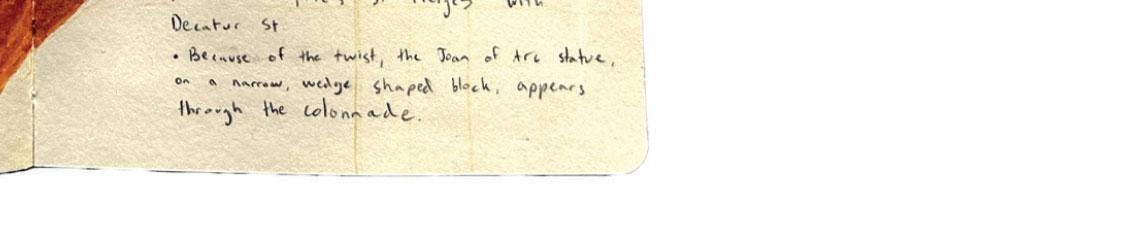 with
Decatur St.
• Because of the twist, the Joan of Arc statue,
on a narrow, wedge shaped block, appears
through the colonnade.